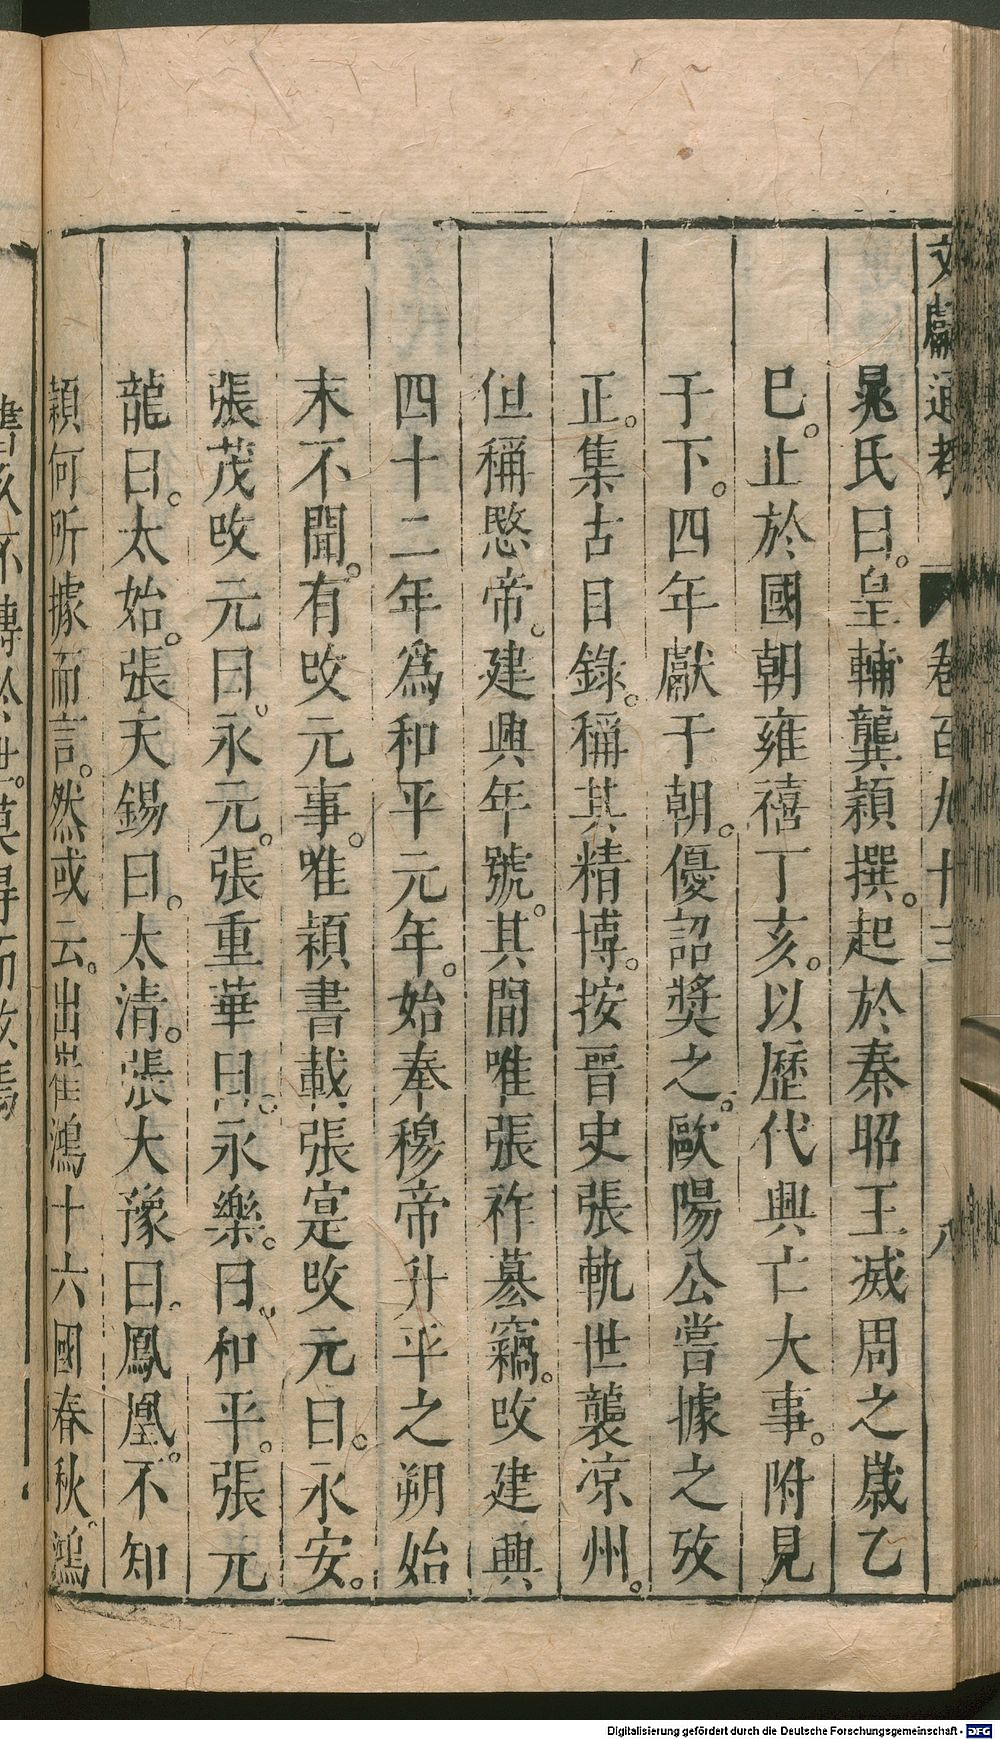 文獻通考 卷百九十三 八
晁氏曰。皇輔龔穎撰。起於秦昭王滅周之歲乙
巳。止於國朝雍禧丁亥。以歷代興亡大事。附見
于下。四年獻于朝。優詔獎之。歐陽公嘗據之攷
正。集古目錄。稱其精博。按晉史張軌世襲凉州。
但稱愍帝。建興年號。其間唯張祚墓竊。改建興
四十二年爲和平元年。始奉穆帝升平之朔始
末不聞。有改元事。唯穎書載張寔改元曰。永安。
張茂改元曰。永元。張重華曰。永樂。曰。和平。張元
龍曰。太始。張天錫曰。太清。張大豫曰。鳳凰。不知
穎何所據而言。然或云。出崔鴻十六國春秋。鴻
書久不傳於世。莫得而攷焉
Digitalisierung gefördert durch die Deutsche Forschungsgemeinschaft - DFG